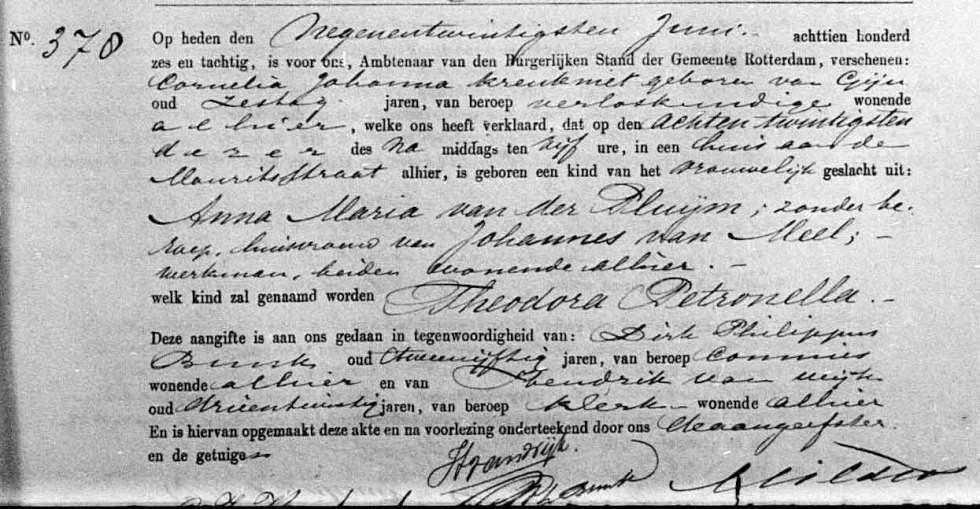 No. 378 Op heden den Negenentwintigsten Juni achttien honderd
zes en tachtig, is voor ons, Ambtenaar van den Burgerlijken Stand der Gemeente Rotterdam, verschenen:
Cornelia Johanna geboren van
oud zestig jaren, van beroep verloskundige wonende
alhier, welke ons heeft verklaard, dat op den achtentwintigsten
dezer des Na middags ten vijf ure, in een huis aan de
Mauritsstraat alhier, is geboren een kind van het vrouwelijk geslacht uit:
Anna Maria van der Pluijm; zonder be-
roep, huisvrouw van Johannes van Meel; -
werkman, beiden wonende alhier. -
welk kind zal genaamd worden Theodora Petronella. -
Deze aangifte is aan ons gedaan in tegenwoordigheid van: Dirk Philippus
oud tweevijftig jaren, van beroep Commies
wonende alhier en van Hendrik van Wijk
oud drieentwintig jaren, van beroep klerk - wonende alhier
En is hiervan opgemaakt deze akte en na voorlezing onderteekend door ons de aangeefster
en de getuigen